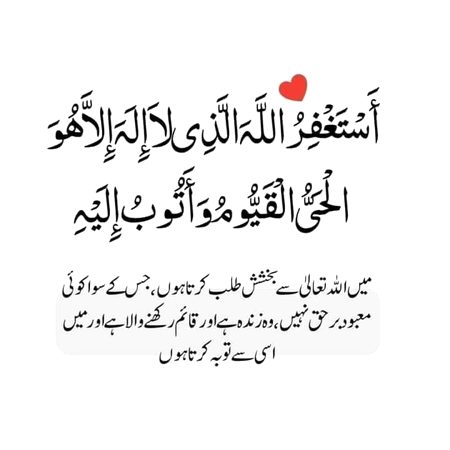 أَسْتَغْفِرُ اللَّهَ الَّذِی لاَ إِلَهَ إِلاَّ هُوَ
الْحَیُّ الْقَیُّومُ وَأَتُوبُ إِلَیْهِ
میں اللہ تعالیٰ سے بخشش طلب کرتا ہوں، جس کے سوا کوئی
معبود برحق نہیں، وہ زندہ ہے اور قائم رکھنے والا ہے اور میں
اسی سے توبہ کرتا ہوں